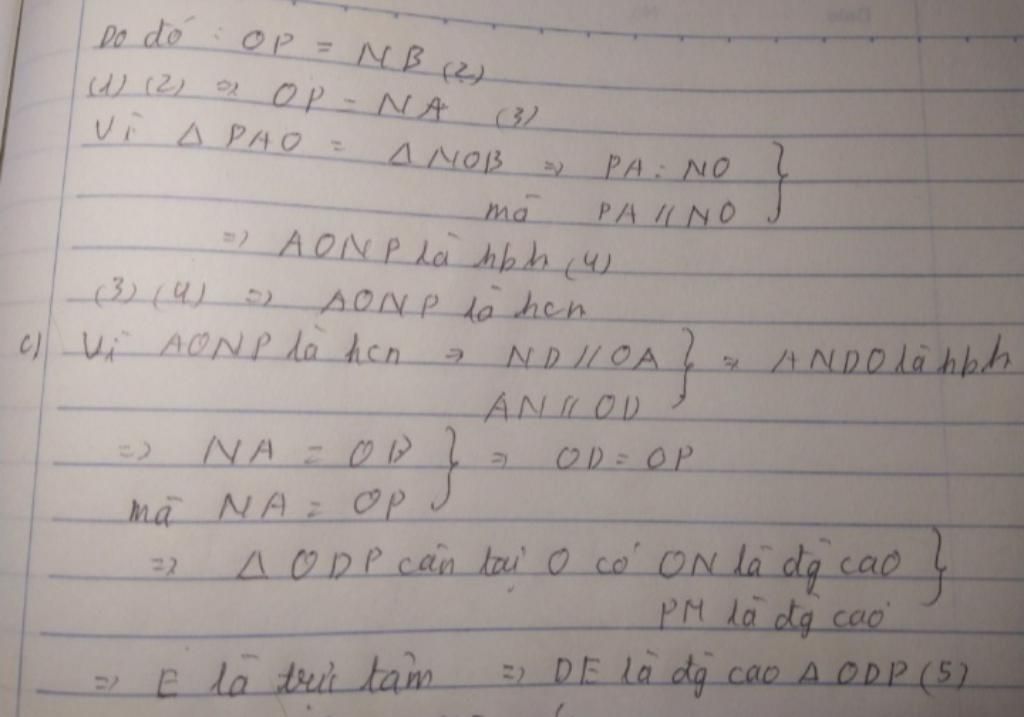 Do đó : OP = NB (2)
(1) (2) => OP = NA (3)
Vì Δ PAO = Δ NOB => PA = NO }
mà PA // NO
=> AONP là hbh (4)
(3) (4) => AONP là hcn
c) Vì AONP là hcn => ND // OA } => ANDO là hbh
AN // OD
=> NA = OD } => OD = OP
mà NA = OP
=> Δ ODP cân tại O có ON là đg cao }
PM là đg cao
=> E là trực tâm => DE là đg cao Δ ODP (5)